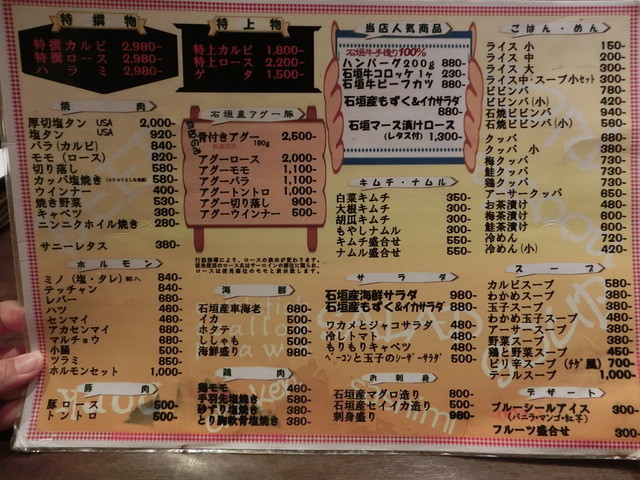 特撰物
特撰カルビ 2,980-
特撰ロース 2,980-
ハラミ 2,980-
特上物
特上カルビ 1,800-
特上ロース 2,200-
ゲタ 1,500-
焼肉
厚切塩タン USA 2,000-
塩タン USA 920-
バラ(カルビ) 840-
モモ(ロース) 820-
切り落し 580-
カッパ塩焼き 580-
ウインナー 400-
焼き野菜 530-
キャベツ 380-
ニンニクホイル焼き 280-
サニーレタス 380-
ホルモン
ミノ(塩・タレ)輸入 840-
テッチャン 840-
レバー 680-
ハツ 460-
センマイ 460-
アカセンマイ 680-
マルチョウ 680-
小腸 500-
ツラミ 850-
ホルモンセット 1,000-
豚肉
豚ロース 500-
トントロ 500-
石垣産アグー豚
骨付きアグー 2,500-
180g
アグーロース 2,000-
アグーモモ 1,100-
アグーバラ 1,100-
アグートントロ 1,000-
アグー切り落し 900-
アグーウインナー 500-
行政指導により、ロースの表示が変わります。
従来使用のロース名はサーロインの部位に限られ、
ロースは使用部位のモモと表示致します。
海鮮
石垣産車海老 680-
イカ 500-
ホタテ 500-
ししゃも 500-
海鮮盛り 980-
鶏肉
鶏モモ 460-
手羽先塩焼き 580-
砂ずり塩焼き 380-
とり胸軟骨塩焼き 380-
当店人気商品
石垣牛手捏り100%
ハンバーグ200g 880-
石垣牛コロッケ1ヶ 230-
石垣牛ビーフカツ 880-
石垣産もずく&イカサラダ
880-
石垣マース漬けロース
(タレ付) 1,300-
キムチ・ナムル
白菜キムチ 350-
大根キムチ 300-
胡瓜キムチ 300-
もやしナムル 300-
キムチ盛合せ 550-
ナムル盛合せ 550-
サラダ
石垣産海鮮サラダ 980-
石垣産もずく&イカサラダ 880-
ワカメとジャコサラダ 480-
冷しトマト 480-
もりもりキャベツ 480-
ベーコンと玉子のシーザーサラダ 500-
お刺身
石垣産マグロ造り 800-
石垣産セイイカ造り 500-
刺身盛り 980-
ごはん・めん
ライス 小 150-
ライス 中 200-
ライス 大 300-
ライス中・スープ小セット 300-
ビビンバ 780-
ビビンバ(小) 420-
石焼ビビンバ 940-
石焼ビビンバ(小) 580-
クッパ 680-
クッパ 小 380-
梅クッパ 730-
鮭クッパ 730-
鶏クッパ 730-
アーサークッパ 850-
お茶漬け 480-
梅茶漬け 600-
鮭茶漬け 600-
冷めん 720-
冷めん(小) 420-
スープ
カルビスープ 580-
わかめスープ 380-
玉子スープ 380-
わかめ玉子スープ 380-
アーサースープ 380-
野菜スープ 380-
鶏と野菜スープ 450-
ピリ辛スープ(チゲ風) 700-
テールスープ 1,000-
デザート
ブルーシールアイス 300-
(バニラ・マンゴ・紅芋)
フルーツ盛合せ 300-